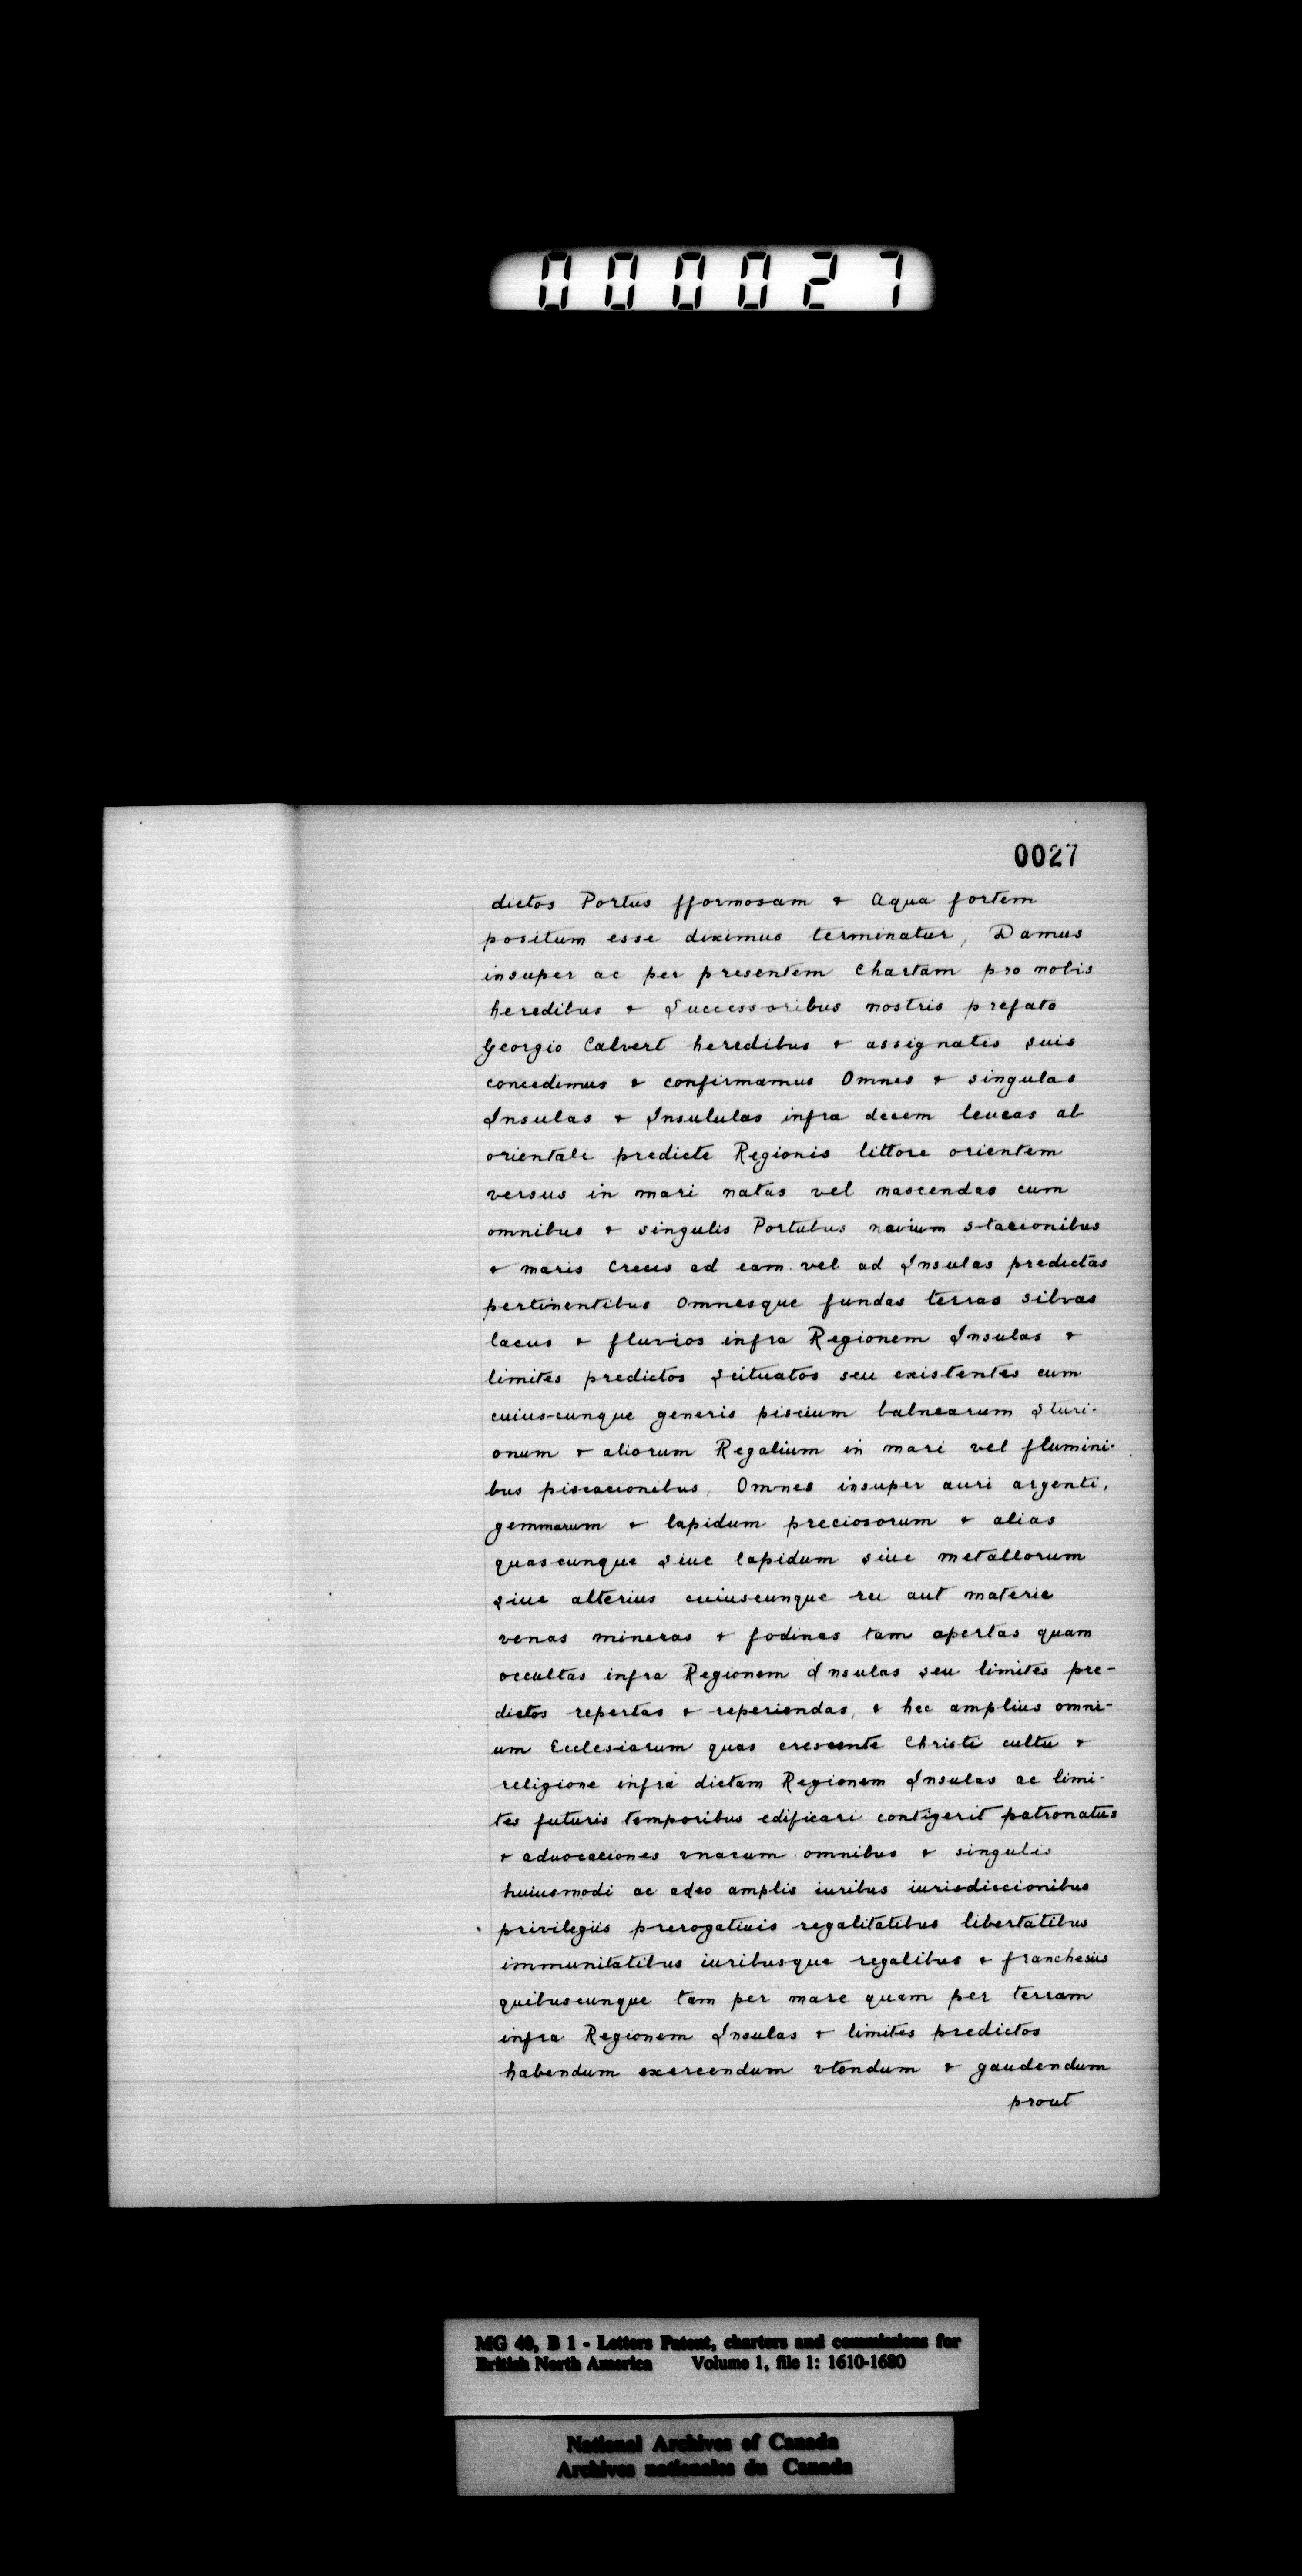 000027
0027
dictos Portus fformosam & Aqua fortem
positum esse diximus terminatur, Damus
insuper ac per presentem Chartam pro nobis
heredibus & Successoribus nostris prefato
Georgio Calvert heredibus & assignatis suis
concedimus & confirmamus Omnes & singulas
Insulas & Insululas infra decem leucas ab
orientali predicte Regionis littore orientem
versus in mari natas vel nascendas cum
omnibus & singulis Portubus navium stacionibus
& maris Crecis ad eam vel ad Insulas predictas
pertinentibus Omnesque fundas terras silvas
lacus & fluvios infra Regionem Insulas &
limites predictos Scituatos seu existentes cum
cuiuscunque generis piscium balnearum Sturi-
onum & aliorum Regalium in mari vel flumini-
bus piscacionibus, Omnes insuper auri argenti,
gemmarum & lapidum preciosorum & alias
quascunque siue lapidum siue metallorum
siue alterius cuiuscunque rei aut materie
venas mineras & fodinas tam apertas quam
occultas infra Regionem Insulas seu limites pre-
dictos repertas & reperiendas, & hec amplius omni-
um Ecclesiarum quas crescente Christi cultu &
religione infra dictam Regionem Insulas ac limi-
tes futuris temporibus edificari contigerit patronatus
& aduocaciones vnacum omnibus & singulis
huiusmodi ac adeo amplis iuribus iurisdiccionibus
privilegiis prerogatiuis regalitatibus libertatibus
immunitatibus iuribusque regalibus & franchesiis
quibuscunque tam per mare quam per terram
infra Regionem Insulas & limites predictos
habendum exercendum vtendum & gaudendum
prout
MG 40, B 1 - Letters Patent, charters and commissions for
British North America Volume 1, file 1: 1610-1680
National Archives of Canada
Archives nationales du Canada